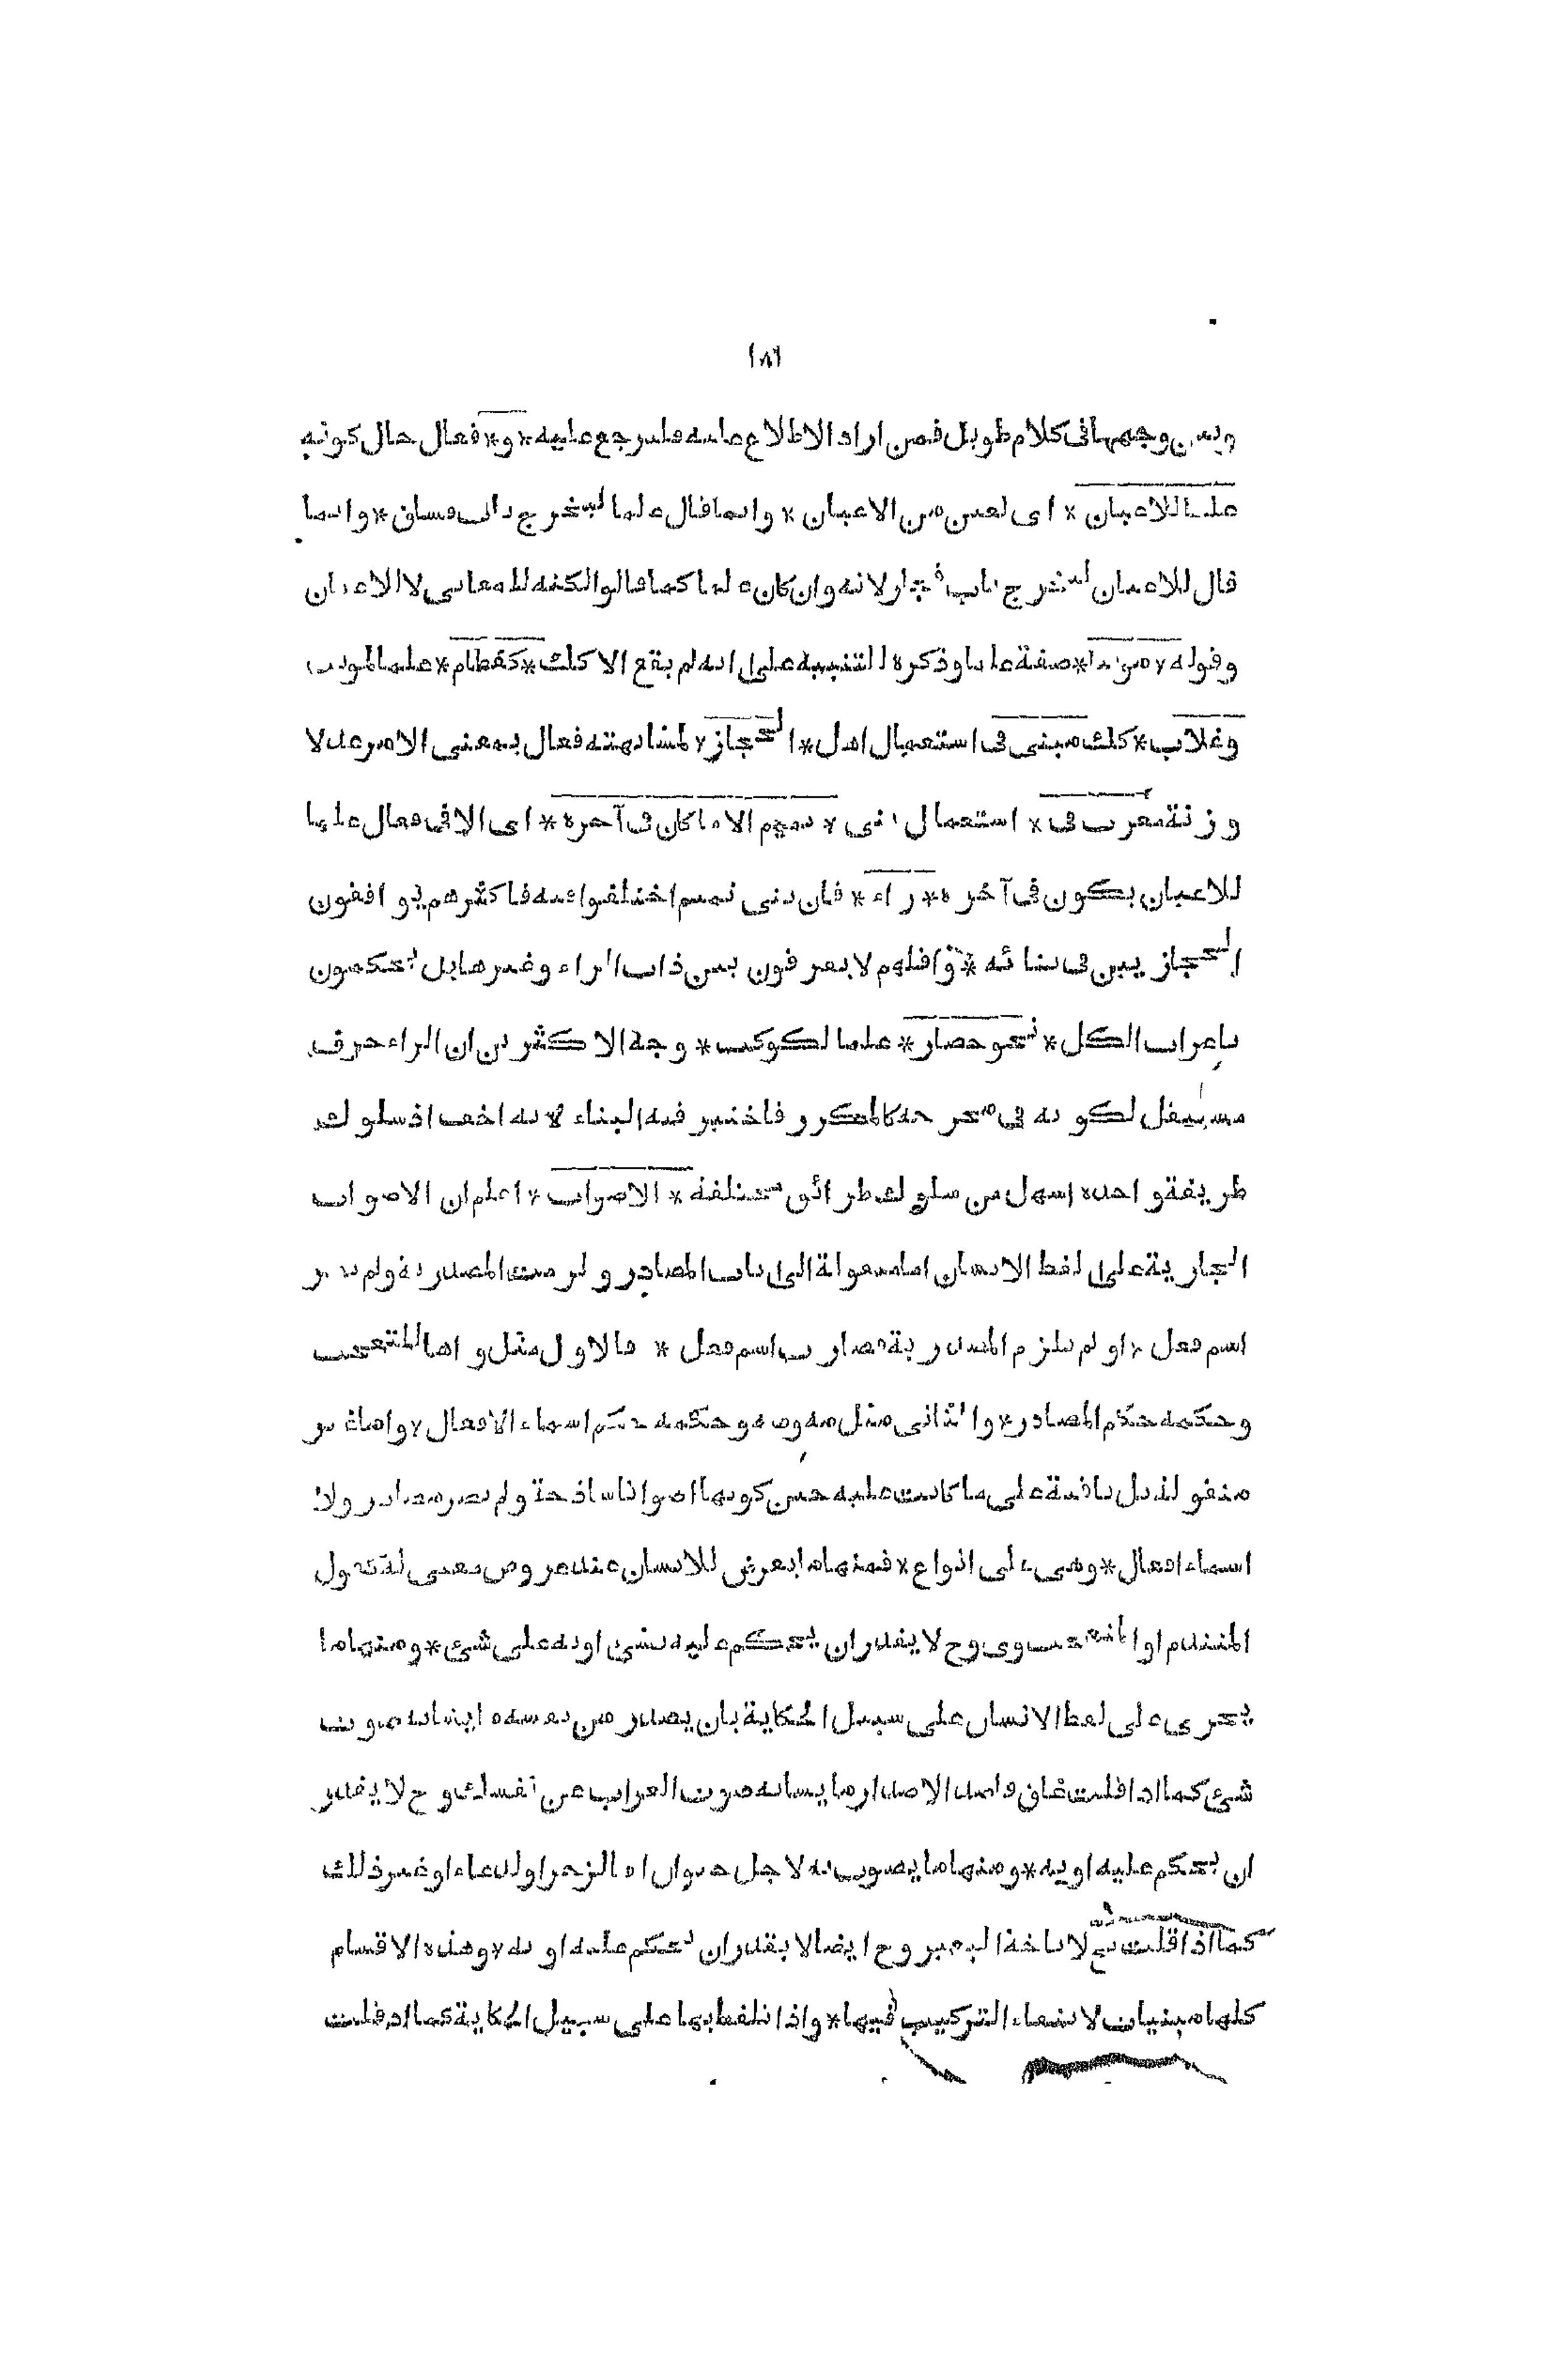 ١٨١
وبين وجهها فى كلام طويل فمن اراد الاطلاع عليه فليرجع عليه * و * فعال حال كونه
علما للاعيان * اى لعين من الاعيان * وانما قال علما ليخرج باب فساق * وانما
قال للاعيان ليخرج باب فجار لانه وان كان علما كما قالوا لكنه للمعانى لا الاعيان
وقوله * مؤنثا * صفة علما وذكره للتنبيه على انه لم يقع الا كك * كقطام * علما لمؤنث
وغلاب * كك مبنى فى استعمال اهل * الحجاز * لمشابهته فعال بمعنى الامر عدلا
وزنة معرب فى * استعمال بنى * تميم الا ما كان فى آخره * اى الا فى فعال علما
للاعيان يكون فى آخره * راء * فان بنى تميم اختلفوا فيه فاكثرهم يوافقون
الحجازيين فى بنائه * واقلهم لا يعرفون بين ذات الراء وغيرها بل يحكمون
باعراب الكل * نحو حضار * علما لكوكب * وجه الاكثرين ان الراء حرف
مستثقل لكونه فى مخرجه كالمكرر فاختير فيه البناء لانه اخف اذ سلوك
طريقة واحدة اسهل من سلوك طرائق مختلفة * الاصوات * اعلم ان الاصوات
الجارية على لفظ الانسان اما منقولة الى باب المصادر ولزمت المصدرية ولم يصر
اسم فعل * او لم يلزم المصدرية فصارت اسم فعل * فالاول مثل واها للتعجب
وحكمه حكم المصادر * والثانى مثل صه ومه وحكمه حكم اسماء الافعال * واما غير
منقولة بل باقية على ما كانت عليه حين كونها اصواتا ساذجة ولم يصر مصادر ولا
اسماء افعال * وهى على انواع * فمنها ما يعرض للانسان عند عروض معنى له كقول
المتندم او المتعجب وى وح لا يقدر ان يحكم عليه بشئ او به على شئ * ومنها ما
يجرى على لفظ الانسان على سبيل الحكاية بان يصدر من نفسه ما يشابه صوت
شئ كما اذا قلت غاق قاصدا لاصدار ما يشابه صوت الغراب عن نفسك وح لا يقدر
ان يحكم عليه او به * ومنها ما يصوت به لاجل حيوان اما لزجر او لدعاء او غير ذلك
كما اذا قلت نخ لاناخة البعير وح ايضا لا يقدر ان يحكم عليه او به * وهذه الاقسام
كلها مبنيات لانتفاء التركيب فيها * واذا تلفظ بها على سبيل الحكاية كما اذ قلت